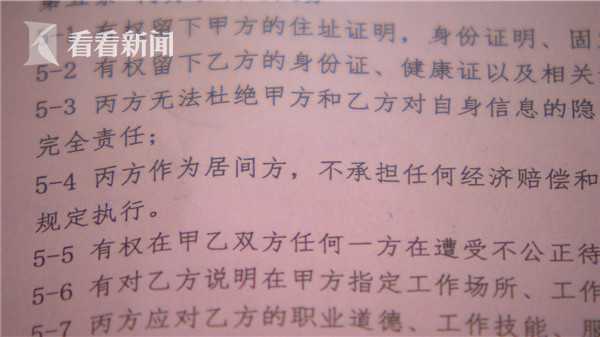 看看新闻
5-1 有权留下甲方的住址证明，身份证明、固
5-2 有权留下乙方的身份证、健康证以及相关
5-3 丙方无法杜绝甲方和乙方对自身信息的隐
完全责任；
5-4 丙方作为居间方，不承担任何经济赔偿和
规定执行。
5-5 有权在甲乙双方任何一方在遭受不公正待
5-6 有对乙方说明在甲方指定工作场所、工作
5-7 丙方应对乙方的职业道德、工作技能、服